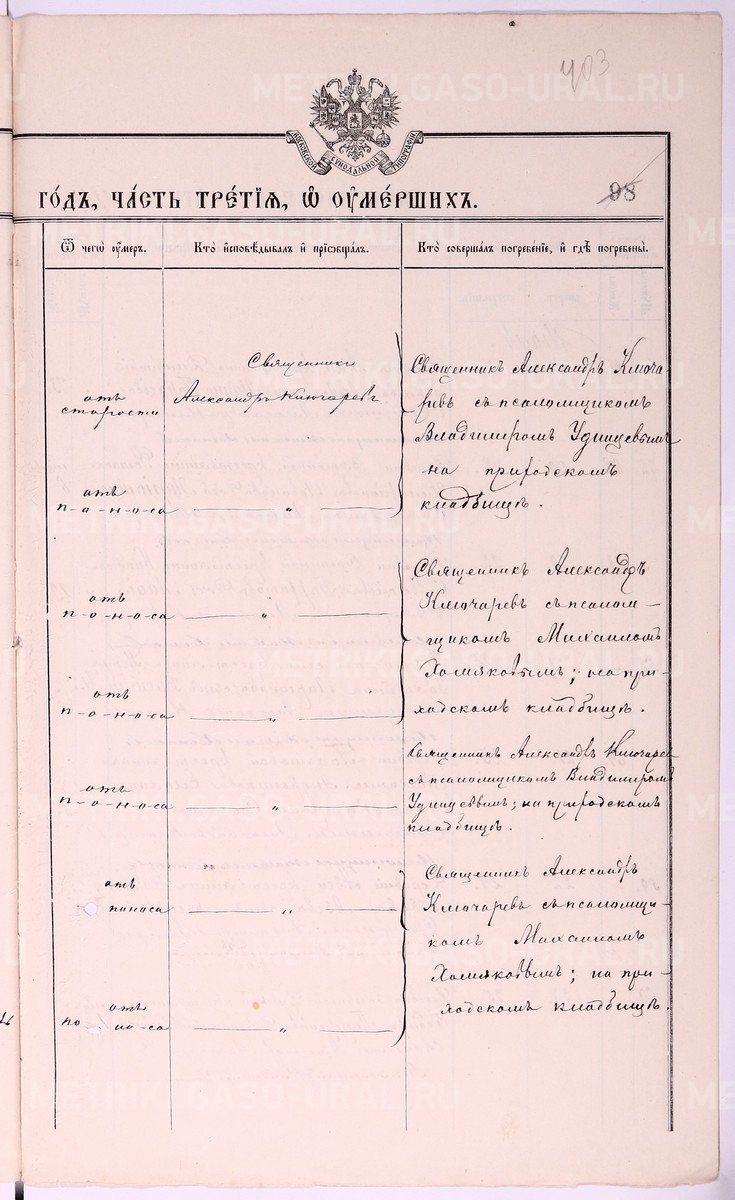 403
МОСКОВСКОЙ СѴНОДАЛЬНОЙ ТИПОГРАФІИ
ГОДЪ, ЧАСТЬ ТРЕТІѦ, Ѿ ОУМЕРШИХЪ.
98
Ѿ чегѡ оумеръ.
Кто исповѣдывалъ и пріобщалъ.
Кто совершалъ погребеніе, и гдѣ погребены.
отъ
старости
Священникъ
Александръ Ключаревъ
Священникъ Александръ Ключа
ревъ съ псаломщикомъ
Владимиромъ Удинцевымъ
на приходскомъ
кладбищѣ.
отъ
п-о-н-о-са
"
отъ
п-о-н-о-са
"
Священникъ Александръ
Ключаревъ съ псалом-
щикомъ Михаиломъ
Хомяковымъ; на при-
ходскомъ кладбищѣ.
отъ
п-о-н-о-са
"
отъ
п-о-н-о-са
"
Священникъ Александръ Ключаревъ
съ псаломщикомъ Владимиромъ
Удинцевымъ; на приходскомъ
кладбищѣ.
отъ
поноса
"
Священникъ Александръ
Ключаревъ съ псаломщи-
комъ Михаиломъ
Хомяковымъ; на при-
ходскомъ кладбищѣ.
отъ
по но-са
"
METRIKI.GASO-URAL.RU